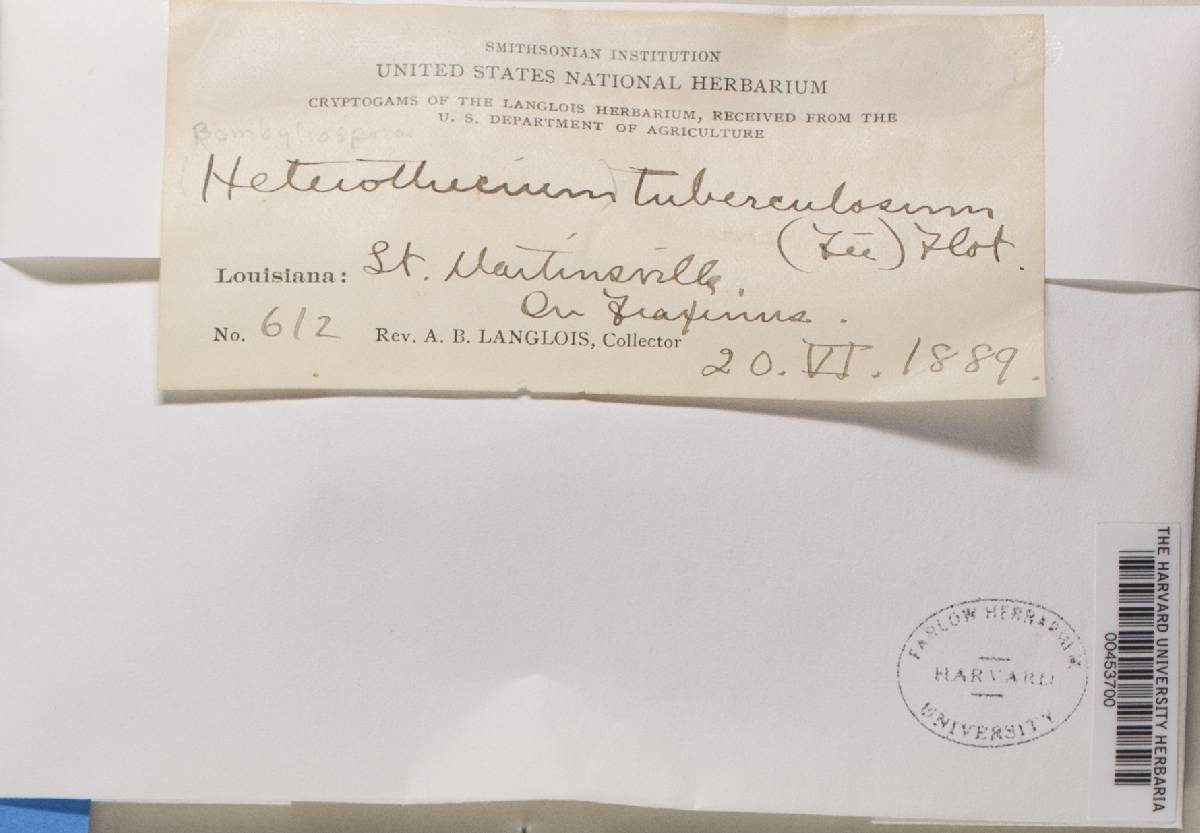 SMITHSONIAN INSTITUTION
UNITED STATES NATIONAL HERBARIUM
CRYPTOGAMS OF THE LANGLOIS HERBARIUM, RECEIVED FROM THE
U. S. DEPARTMENT OF AGRICULTURE
Bombyliospora
(Heterothecium) tuberculosum
(Fée) Flot.
Louisiana: St. Martinsville.
On Fraxinus.
No. 612 Rev. A. B. LANGLOIS, Collector
20. VI. 1889.
FARLOW HERBARIUM
HARVARD
UNIVERSITY
THE HARVARD UNIVERSITY HERBARIA
00453700